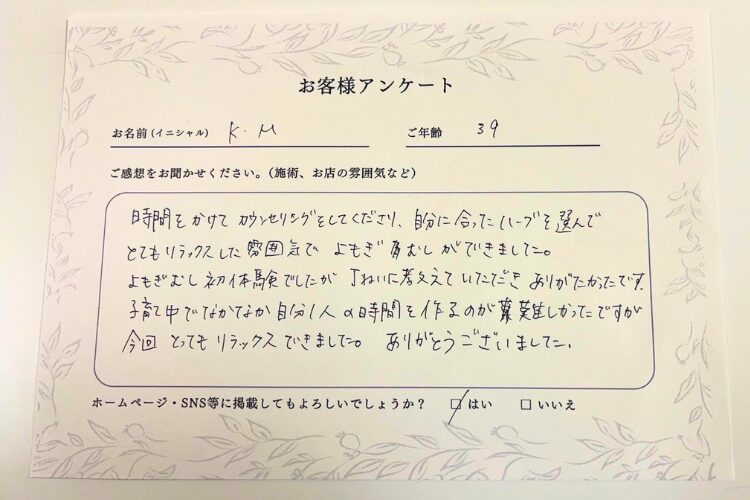 お客様アンケート
お名前(イニシャル) K.M ご年齢 39
ご感想をお聞かせください。(施術、お店の雰囲気など)
時間をかけてカウンセリングをしてくださり、自分に合ったハーブを選んで
とてもリラックスした雰囲気で よもぎむしができました。
よもぎむし初体験でしたが ていねいに教えていただき ありがたかったです。
子育て中でなかなか自分1人の時間を作るのが難しかったですが
今回 とってもリラックスできました。 ありがとうございました。
ホームページ・SNS等に掲載してもよろしいでしょうか? □はい □いいえ